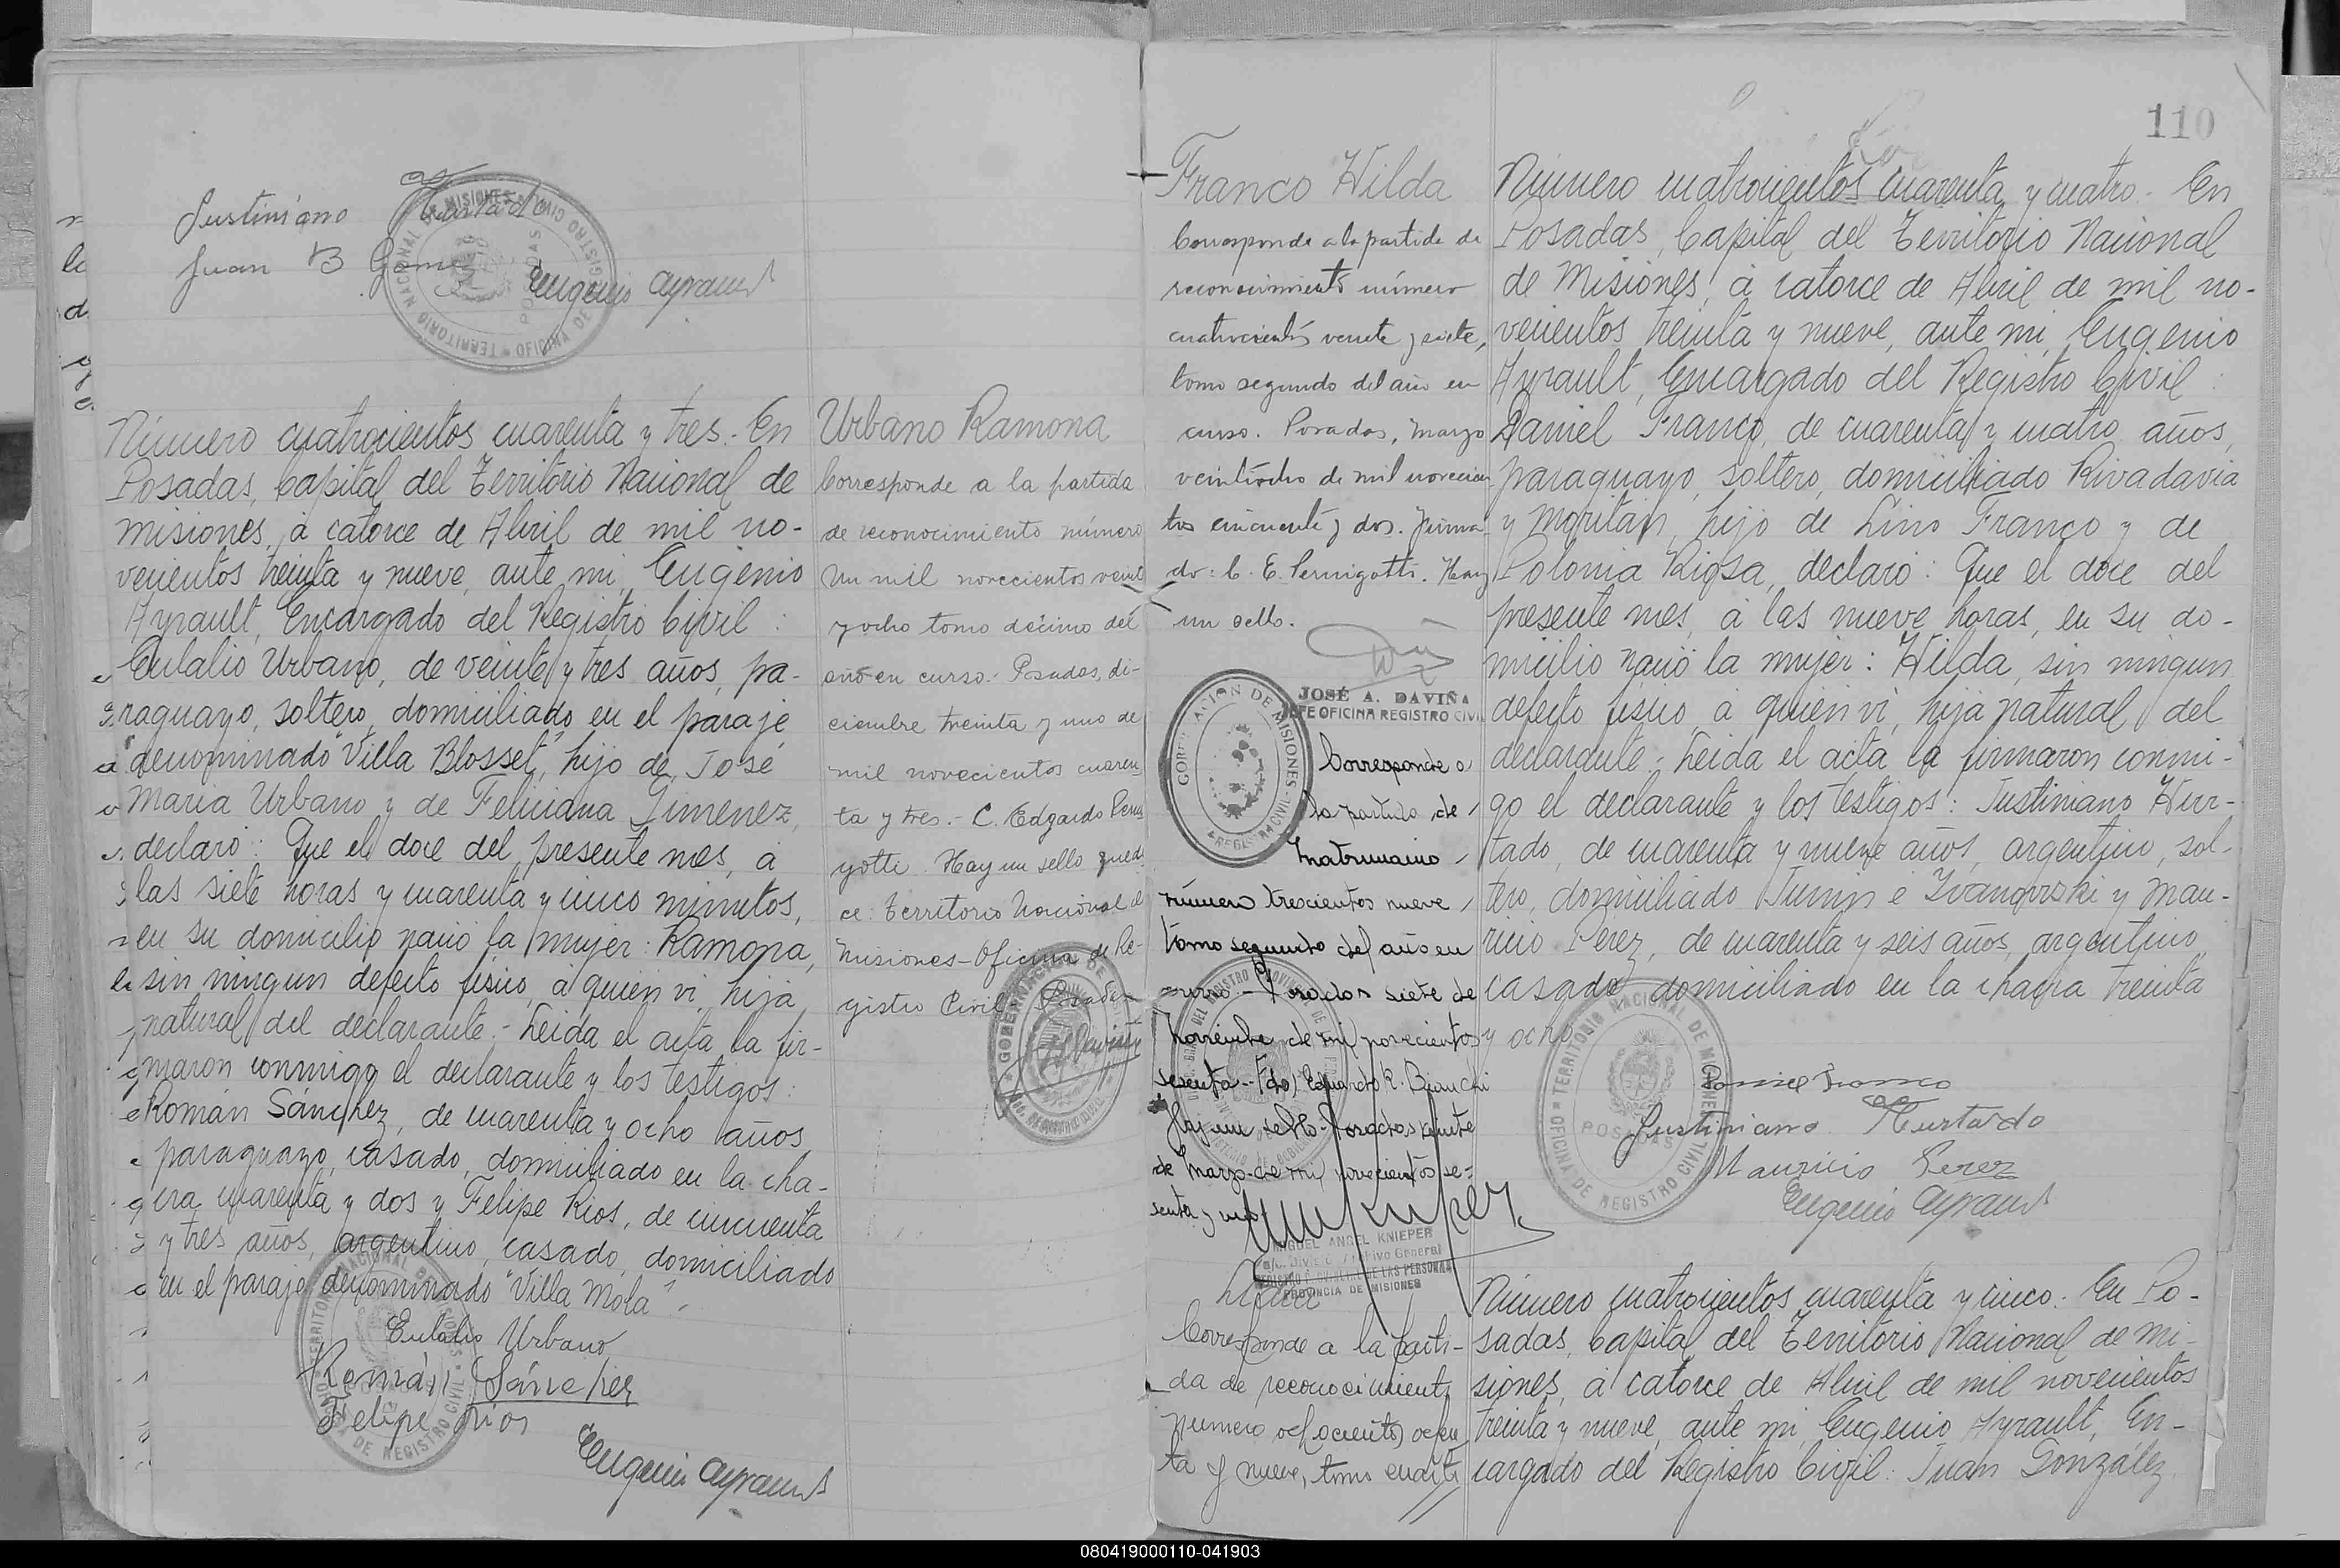 Justiniano Hurtado
Juan B Gomez
Eugenio Ayrault
Número cuatrocientos cuarenta y tres.- En
Posadas, Capital del Territorio Nacional de
Misiones, á catorce de Abril de mil no-
vecientos treinta y nueve, ante mi, Eugenio
Ayrault, Encargado del Registro Civil :
Eulalio Urbano, de veinte y tres años, pa-
raguayo, soltero, domiciliado en el paraje
denominado "Villa Blosset", hijo de José
Maria Urbano y de Feliciana Gimenez,
declaró : Que el doce del presente mes, á
las siete horas y cuarenta y cinco minutos,
en su domicilio nació la mujer : Ramona,
sin ningun defecto fisico, á quien vi, hija
natural del declarante.- Leida el acta la fir-
maron conmigo el declarante y los testigos :
Román Sánchez, de cuarenta y ocho años,
paraguayo, casado, domiciliado en la cha-
cra cuarenta y dos y Felipe Rios, de cincuenta
y tres años, argentino, casado, domiciliado
en el paraje denominado "Villa Mola".-
Eulalio Urbano
Román Sánchez
Felipe Rios
Eugenio Ayrault
Urbano Ramona
Corresponde a la partida
de reconocimiento número
un mil novecientos veint
y ocho tomo décimo del
año en curso.- Posadas, di-
ciembre treinta y uno de
mil novecientos cuaren-
ta y tres.- C. Edgardo
Hay un sello que di
ce: Territorio Nacional de
Misiones - Oficina de Re-
gistro Civil Posadas
110
Franco Hilda
Corresponde a la partida de
reconocimiento número
cuatrocientos veinte y siete,
tomo segundo del año en
curso. Posadas, Marzo
veintiocho de mil novecien
tos cincuenta y dos. Firma
do: C. E. Pernigotti. Hay
un sello.
JOSÉ A. DAVIÑA
JEFE OFICINA REGISTRO CIVIL
GOBERNACION DE MISIONES
REGISTRO CIVIL
Corresponde a
la partida de
Matrimonio
número trescientos nueve
tomo segundo del año en
curso.- Posadas siete de
Noviembre de mil novecientos
sesenta.- Fdo) Eduardo R. Bianchi
Hay un sello.- Posadas veinte
de Marzo de mil novecientos se-
senta y uno
MIGUEL ANGEL KNIEPER
Archivo General
DE LAS PERSONAS
PROVINCIA DE MISIONES
Número cuatrocientos cuarenta y cuatro.- En
Posadas, Capital del Territorio Nacional
de Misiones, á catorce de Abril de mil no-
vecientos treinta y nueve, ante mi, Eugenio
Ayrault, Encargado del Registro Civil :
Daniel Franco, de cuarenta y cuatro años,
paraguayo, soltero, domiciliado Rivadavia
y Moritán, hijo de Lino Franco y de
Polonia Riosa, declaró : Que el doce del
presente mes, á las nueve horas, en su do-
micilio nació la mujer : Hilda, sin ningun
defecto fisico, á quien vi, hija natural del
declarante.- Leida el acta la firmaron conmi-
go el declarante y los testigos : Justiniano Hur-
tado, de cuarenta y nueve años, argentino, sol-
tero, domiciliado Junin é Ivanowski y Mau-
ricio Perez, de cuarenta y seis años, argentino,
casado domiciliado en la chacra treinta
y ocho
Daniel Franco
Justiniano Hurtado
Mauricio Perez
Eugenio Ayrault
TERRITORIO NACIONAL DE MISIONES
OFICINA DE REGISTRO CIVIL
POSADAS
Corresponde a la parti-
da de reconocimiento
número ochocientos ochen
ta y nueve, tomo cuarto
Número cuatrocientos cuarenta y cinco.- En Po-
sadas, Capital del Territorio Nacional de Mi-
siones, á catorce de Abril de mil novecientos
treinta y nueve, ante mi, Eugenio Ayrault, En-
cargado del Registro Civil : Juan González,
080419000110-041903